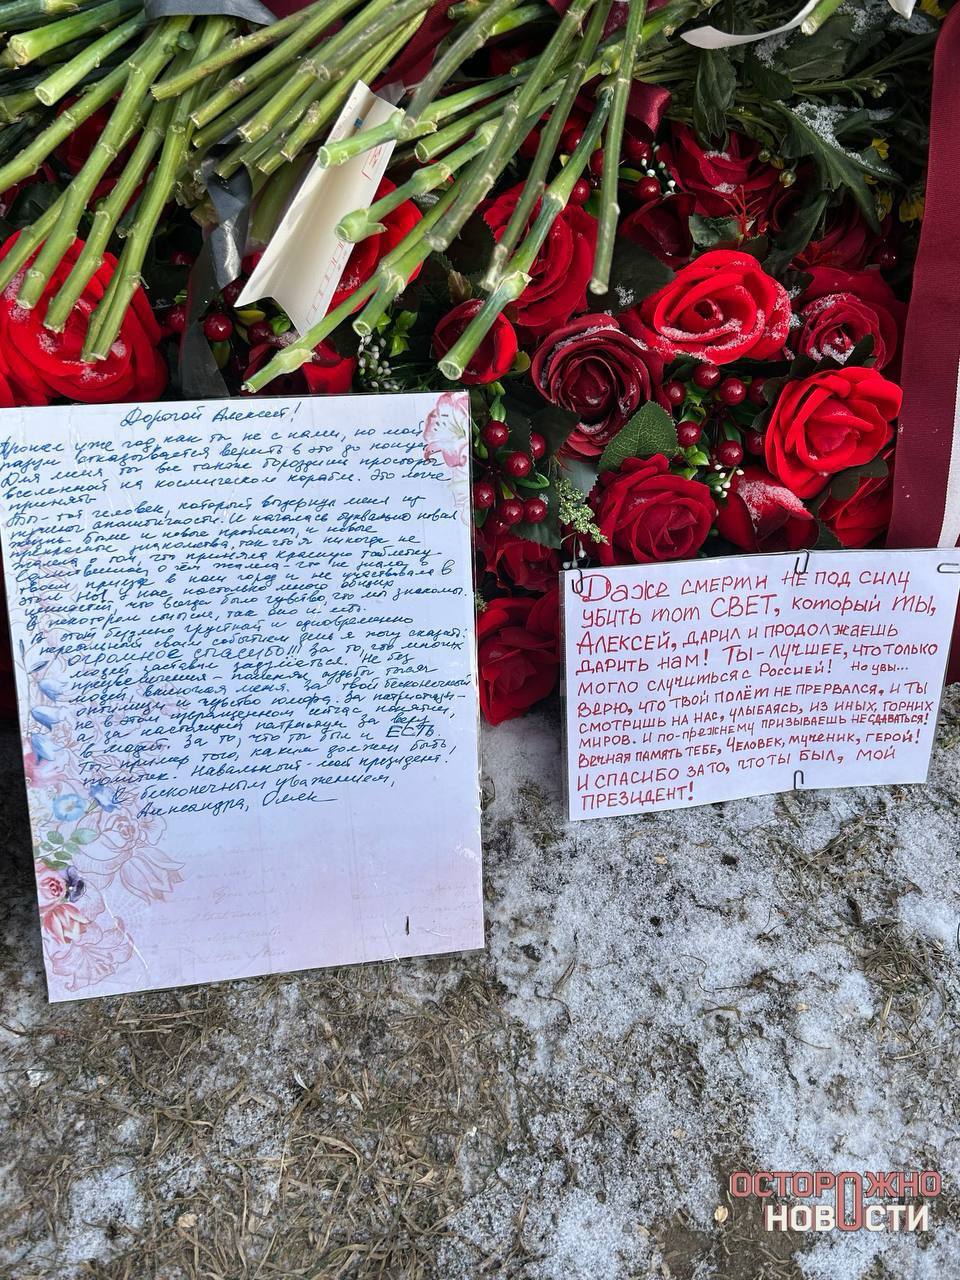 Дорогой Алексей!
Прошёл уже год, как ты не с нами, но мой
разум отказывается верить в это до конца.
Для меня ты все также бороздишь просторы
вселенной на космическом корабле. Это легче
принять.
Ты - тот человек, который выдернул меня из
аполитичности. И началась буквально новая
жизнь. Были и новые проблемы, и новые
прекрасные знакомства, так что я никогда не
жалела о том, что приняла красную таблетку.
Единственное, о чём жалею - не знала о
твоём приезде в наш город и не участвовала в
этом. Но у нас настолько много общих
ценностей, что всегда было чувство, что мы знакомы.
В некотором смысле, так оно и есть.
В этот безумно грустный и одновременно
день я хочу сказать:
ОГРОМНОЕ СПАСИБО!!! За то, что многих
людей заставил задуматься. Не без
преувеличения - поменял судьбы тысяч
людей, включая меня. За твой бесконечный
оптимизм и чувство юмора. За патриотизм -
не в этом извращенном сейчас понятии,
а за настоящий патриотизм. За веру
в людей. За то, что ты был и ЕСТЬ.
Ты пример того, каким должен быть
политик. Навальный - мой президент.
С бесконечным уважением,
Александра, Омск
Даже смерти не под силу
убить тот СВЕТ, который ТЫ,
АЛЕКСЕЙ, дарил и продолжаешь
дарить нам! Ты - лучшее, что только
могло случиться с Россией! Но увы...
Верю, что твой полёт не прервался, и ты
смотришь на нас, улыбаясь, из иных, горних
миров. И по-прежнему призываешь не сдаваться!
Вечная память тебе, Человек, мученик, герой!
И спасибо за то, что ты был, мой
ПРЕЗИДЕНТ!
ОСТОРОЖНО
НОВОСТИ